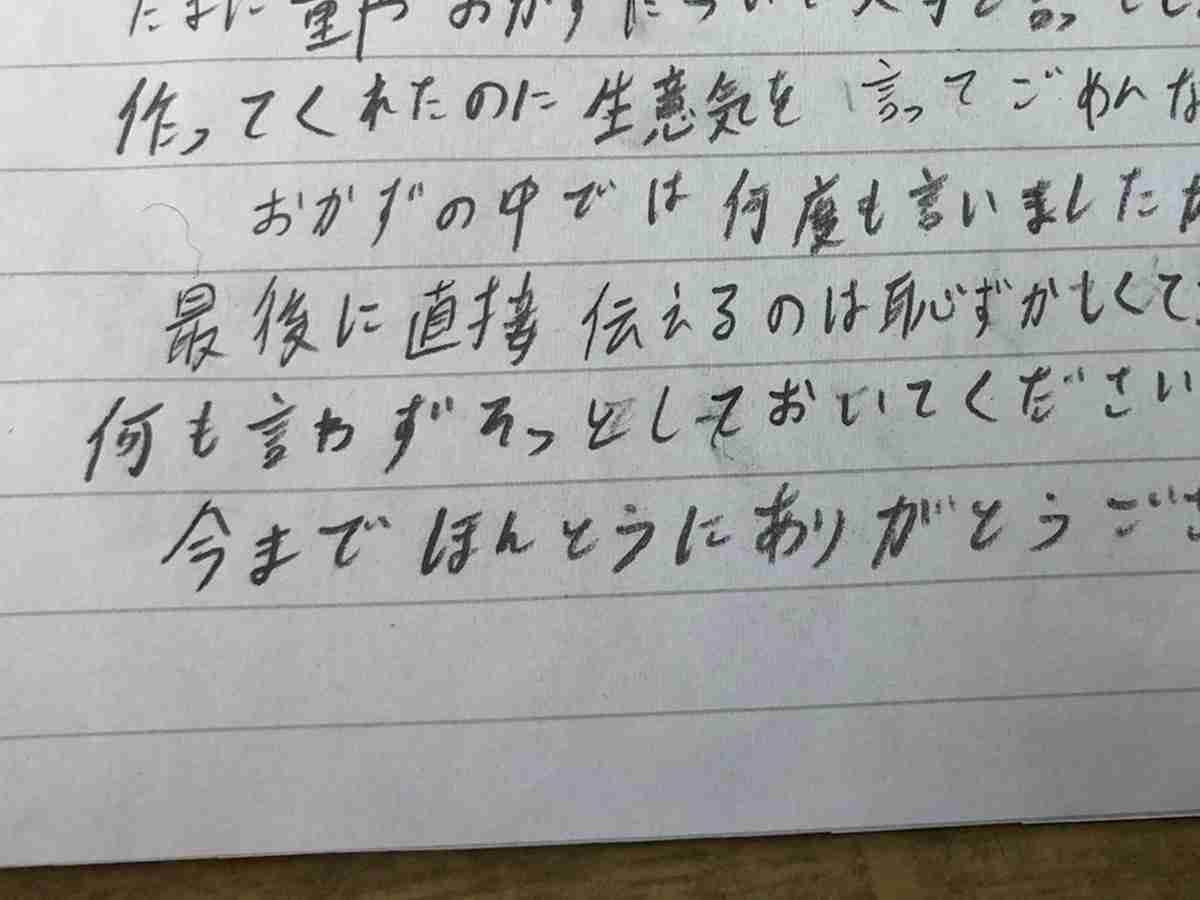 たまに量や おかずについて文句を言って
作ってくれたのに生意気を言ってごめんな
おかずの中では何度も言いましたが
最後に直接伝えるのは恥ずかしくて
何も言わずそっとしておいてください
今までほんとうにありがとうござ